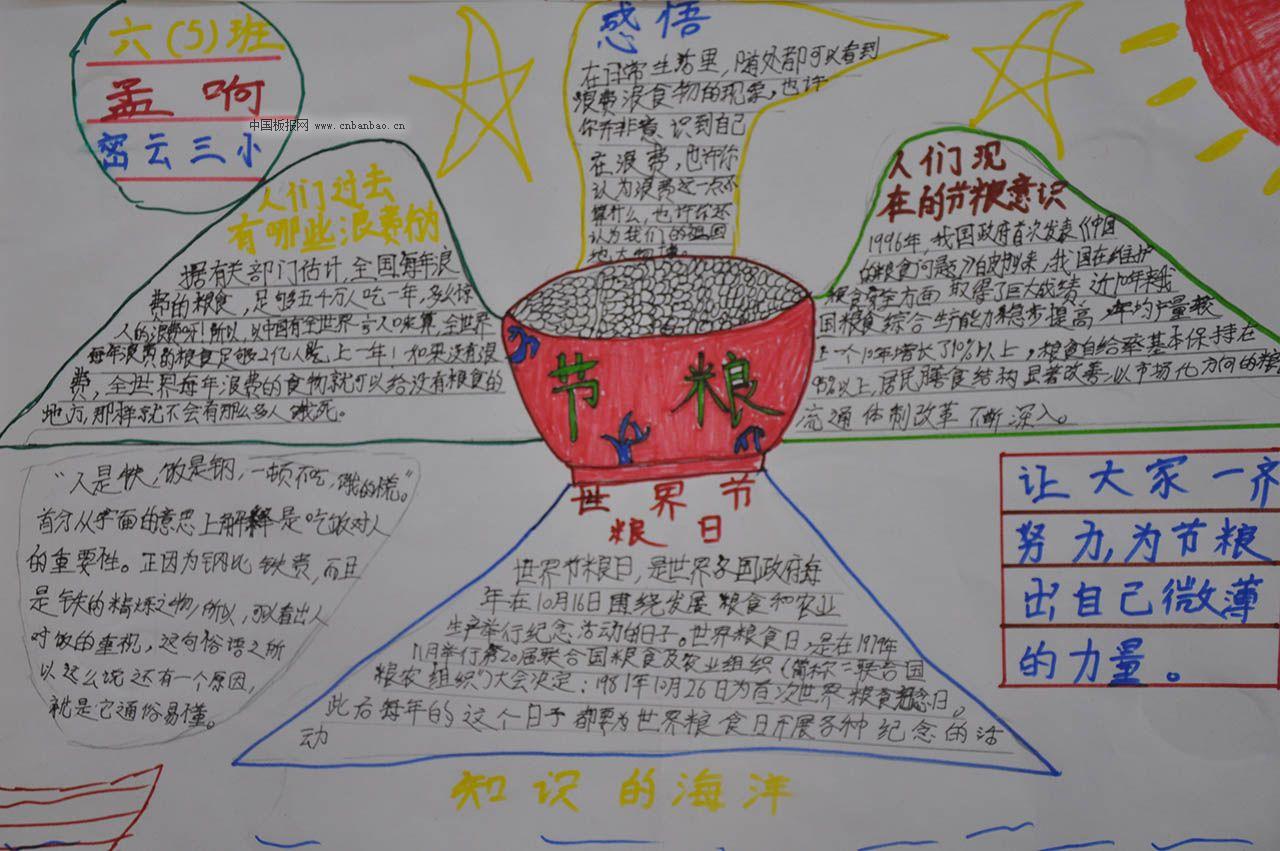 六(5)班
孟 啊
中国板报网 www.cnbanbao.cn
密云三小
人们过去
有哪些浪费的
据有关部门估计,全国每年浪
费的粮食,足够五千万人吃一年,多么惊
人的浪费呀!所以,以中国有全世界 人口来算,全世界
每年浪费的粮食足够2亿人吃上一年!如果没有浪
费,全世界每年浪费的食物就可以给没有粮食的
地方,那样就不会有那么多人饿死。
感悟
在日常生活里,随处都可以看到
浪费浪食物的现象,也许
你并非意识到自己
在浪费,也许你
认为浪费这一点不
算什么,也许你还
认为我们的祖国
地大物博。
人们现
在的节粮意识
1996年,我国政府首次发表《中国
的粮食问题》白皮书以来,我国在维护
粮食安全方面,取得了巨大成绩,近10年来我
国粮食综合生产能力稳步提高,年均产量较
上一个10年增长了10%以上,粮食自给率基本保持在
95%以上,居民膳食结构显著改善,以市场化方向的粮
流通体制改革不断深入。
节 粮
"人是铁,饭是钢,一顿不吃,饿的慌。"
首分从字面的意思上解释是吃饭对人
的重要性。正因为钢比铁贵,而且
是铁的精炼之物,所以,可以看出人
对饭的重视,这句俗语之所
以这么说还有一个原因,
就是它通俗易懂。
世界节
粮日
世界节粮日,是世界各国政府每
年在10月16日围绕发展粮食和农业
生产举行纪念活动的日子。世界粮食日,是在1979年
11月举行第20届联合国粮食及农业组织(简称"联合国
粮农组织")大会决定:1981年10月26日为首次世界粮食纪念日。
此后每年的这个日子都要为世界粮食日开展各种纪念的活
动
让大家一齐
努力,为节粮
出自己微薄
的力量。
知识的海洋